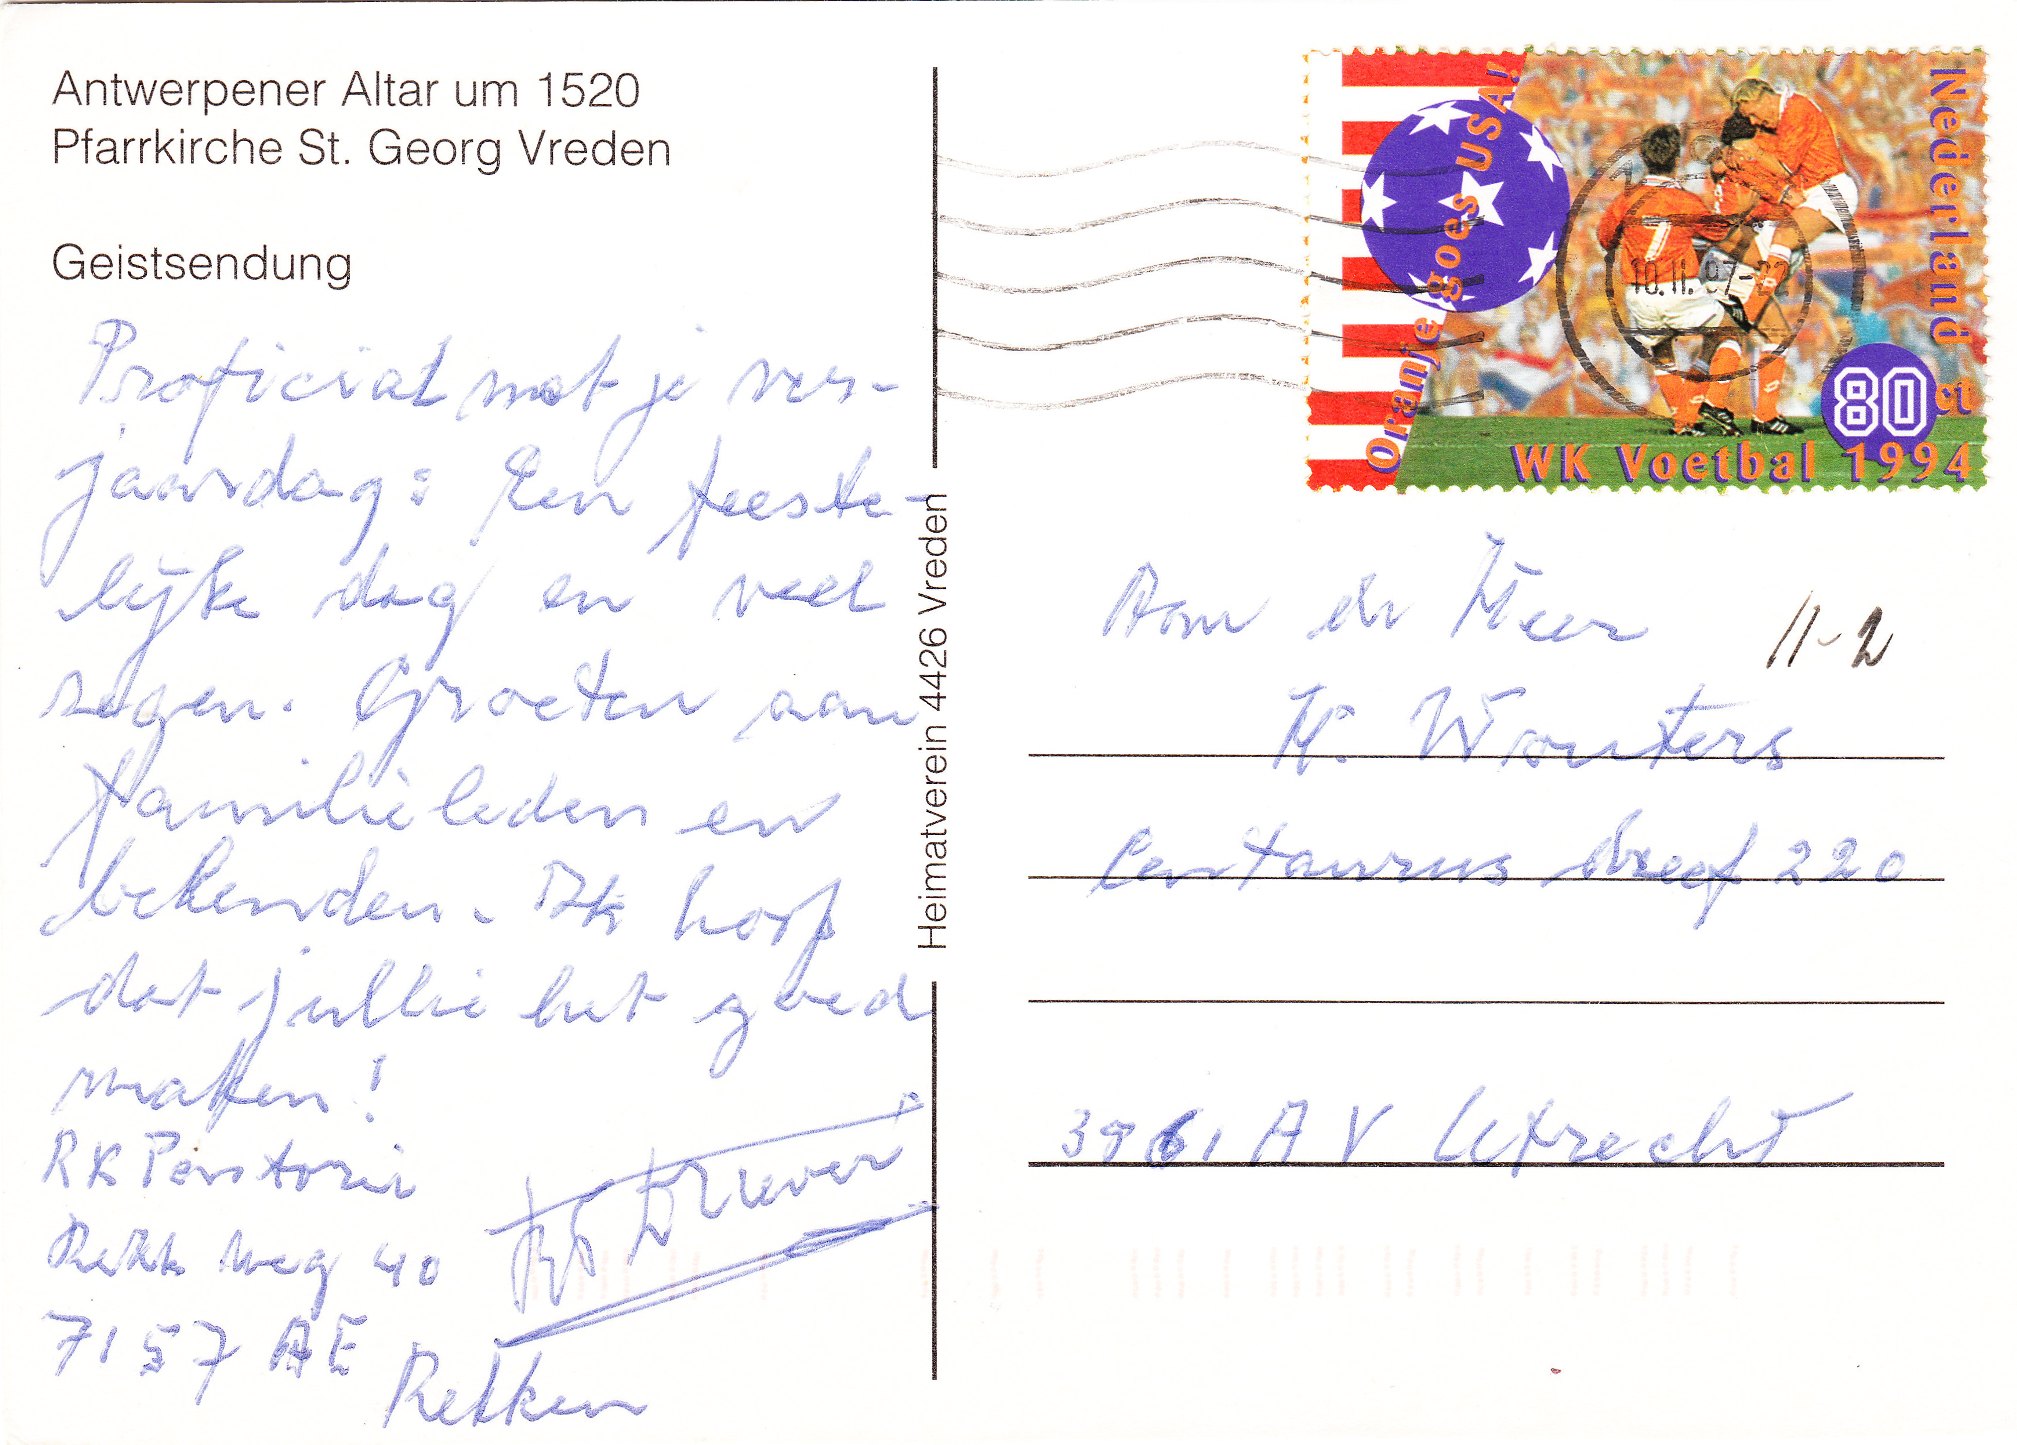 Antwerpener Altar um 1520
Pfarrkirche St. Georg Vreden
Geistsendung
Proficiat met je ver-
jaardag: Een feeste-
lijke dag en veel
zegen. Groeten aan
familieleden en
bekenden. Ik hoop
dat jullie het goed
maken!
RK Pastorie
Rekk weg 40
7157 AE
Rekken
Heimatverein 4426 Vreden
Oranje goes USA!
Nederland
80
ct
WK Voetbal 1994
10.11.97-22
Aan de Heer
11-2
H. Wouters
Centaurus dreef 220
AV Utrecht